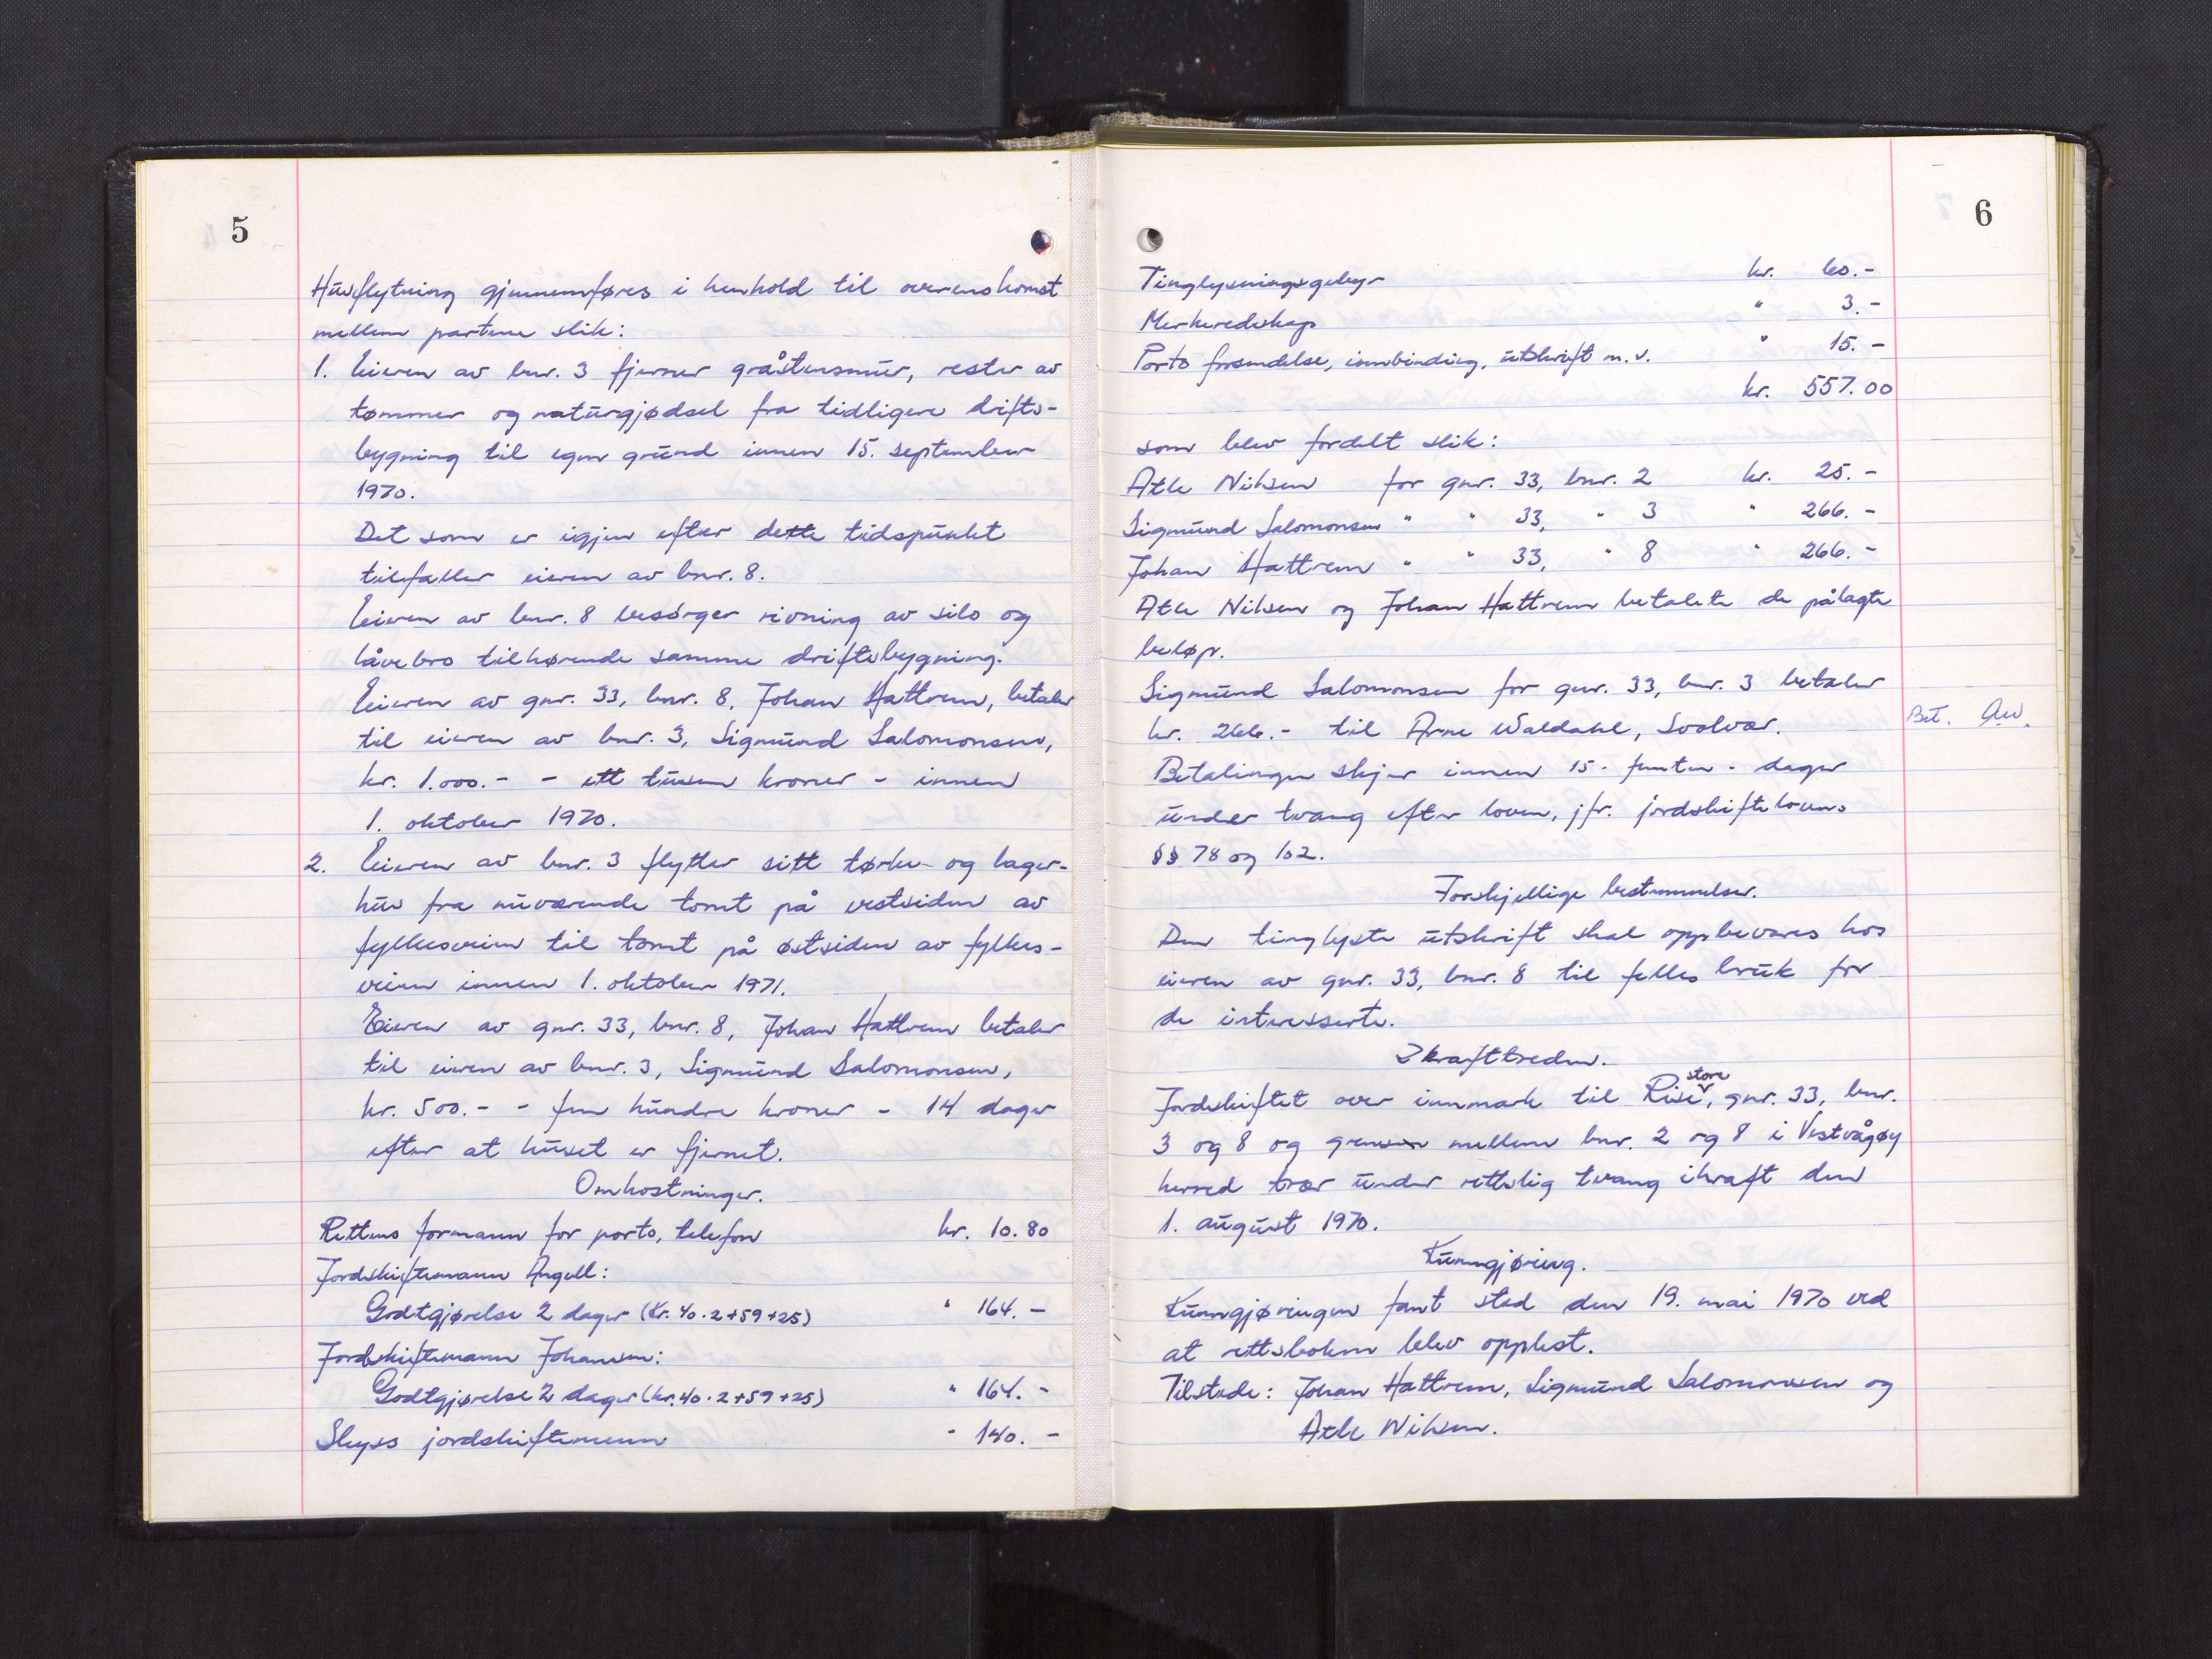 5
Husflytning gjennemføres i henhold til overenskomst
mellem partene slik:
1. Eieren av bnr. 3 fjerner gråstensmur, rester av
tømmer og naturgjødsel fra tidligere drifts-
bygning til egen grund innen 15. september
1970.
Det som er igjen efter dette tidspunkt
tilfaller eieren av bnr. 8.
Eieren av bnr. 8 besørger rivning av silo og
låvebro tilhørende samme driftsbygning.
Eieren av gnr. 33, bnr. 8, Johan Hattrem, betaler
til eieren av bnr. 3, Sigmund Salomonsen,
kr. 1.000.- - ett tusen kroner - innen
1. oktober 1970.
2. Eieren av bnr. 3 flytter sitt tørke- og lager-
hus fra nuværende tomt på vestsiden av
fylkesveien til tomt på østsiden av fylkes-
veien innen 1. oktober 1971.
Eieren av gnr. 33, bnr. 8, Johan Hattrem betaler
til eieren av bnr. 3, Sigmund Salomonsen,
kr. 500.- - fem hundre kroner - 14 dager
efter at huset er fjernet.
Omkostninger.
Rettens formann for porto, telefon kr. 10.80
Jordskiftemann Angell:
Godtgjørelse 2 dager (kr. 40.2+59+25) " 164.-
Jordskiftemann Johansen:
Godtgjørelse 2 dager (kr. 40.2+59+25) " 164.-
Skyss jordskiftemenn " 140.-
6
Tinglysningsgebyr kr. 60.-
Merkeredskap " 3.-
Porto forsendelse, innbinding, utskrift m.v. " 15.-
kr. 557.00
som blev fordelt slik:
Atle Nilsen for gnr. 33, bnr. 2 kr. 25.-
Sigmund Salomonsen " " 33, " 3 " 266.-
Johan Hattrem " " 33, " 8 " 266.-
Atle Nilsen og Johan Hattrem betalete de pålagte
beløp.
Sigmund Salomonsen for gnr. 33, bnr. 3 betaler
kr. 266.- til Arne Waldahl, Svolvær.
Bet. AW.
Betalingen skjer innen 15 - femten - dager
under tvang efter loven, jfr. jordskiftelovens
§§ 78 og 102.
Forskjellige bestemmelser.
Den tinglyste utskrift skal oppbevares hos
eieren av gnr. 33, bnr. 8 til felles bruk for
de interesserte.
Ikrafttreden.
Jordskiftet over innmark til Rise store, gnr. 33, bnr.
3 og 8 og grensen mellem bnr. 2 og 8 i Vestvågøy
herred trær under rettslig tvang ikraft den
1. august 1970.
Kunngjøring.
Kunngjøringen fant sted den 19. mai 1970 ved
at rettsboken blev opplest.
Tilstede: Johan Hattrem, Sigmund Salomonsen og
Atle Nilsen.